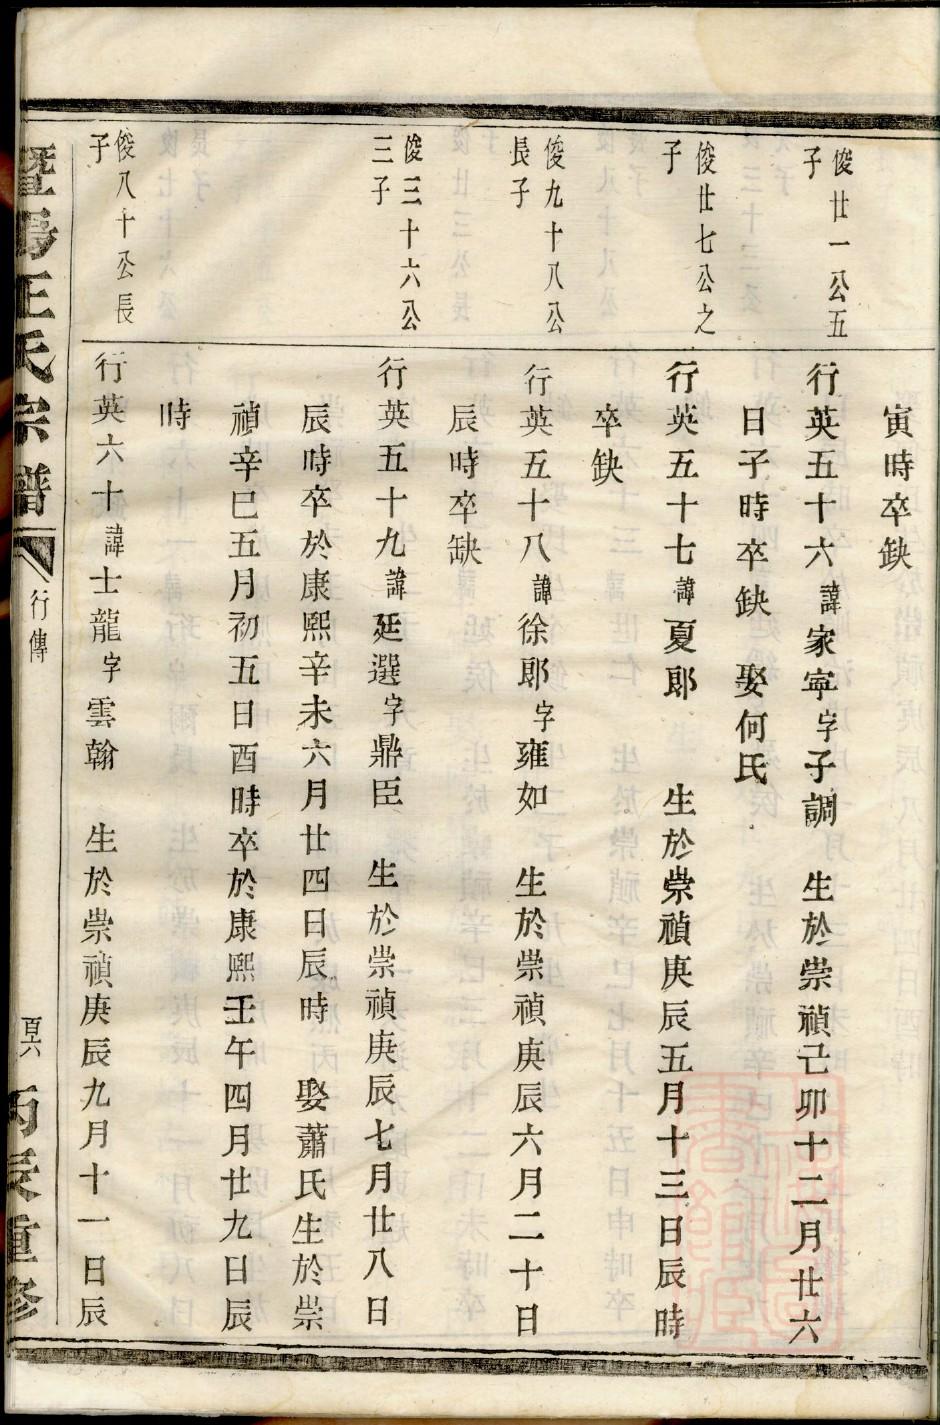 寅時卒缺
俊廿一公五
子
行英五十六諱家寕字子調 生於崇禎己卯十二月廿六
日子時卒缺 娶何氏
俊廿七公之
子
行英五十七諱夏郎 生於崇禎庚辰五月十三日辰時
卒缺
俊九十八公
長子
行英五十八諱徐郎字雍如 生於崇禎庚辰六月二十日
辰時卒缺
俊三十六公
三子
行英五十九諱廷選字鼎臣 生於崇禎庚辰七月廿八日
辰時卒於康熙辛未六月廿四日辰時 娶蕭氏生於崇
禎辛巳五月初五日酉時卒於康熙壬午四月廿九日辰
時
俊八十公長
子
行英六十諱士龍字雲翰 生於崇禎庚辰九月十一日辰
暨陽王氏宗譜
行傳
百六
丙辰重修